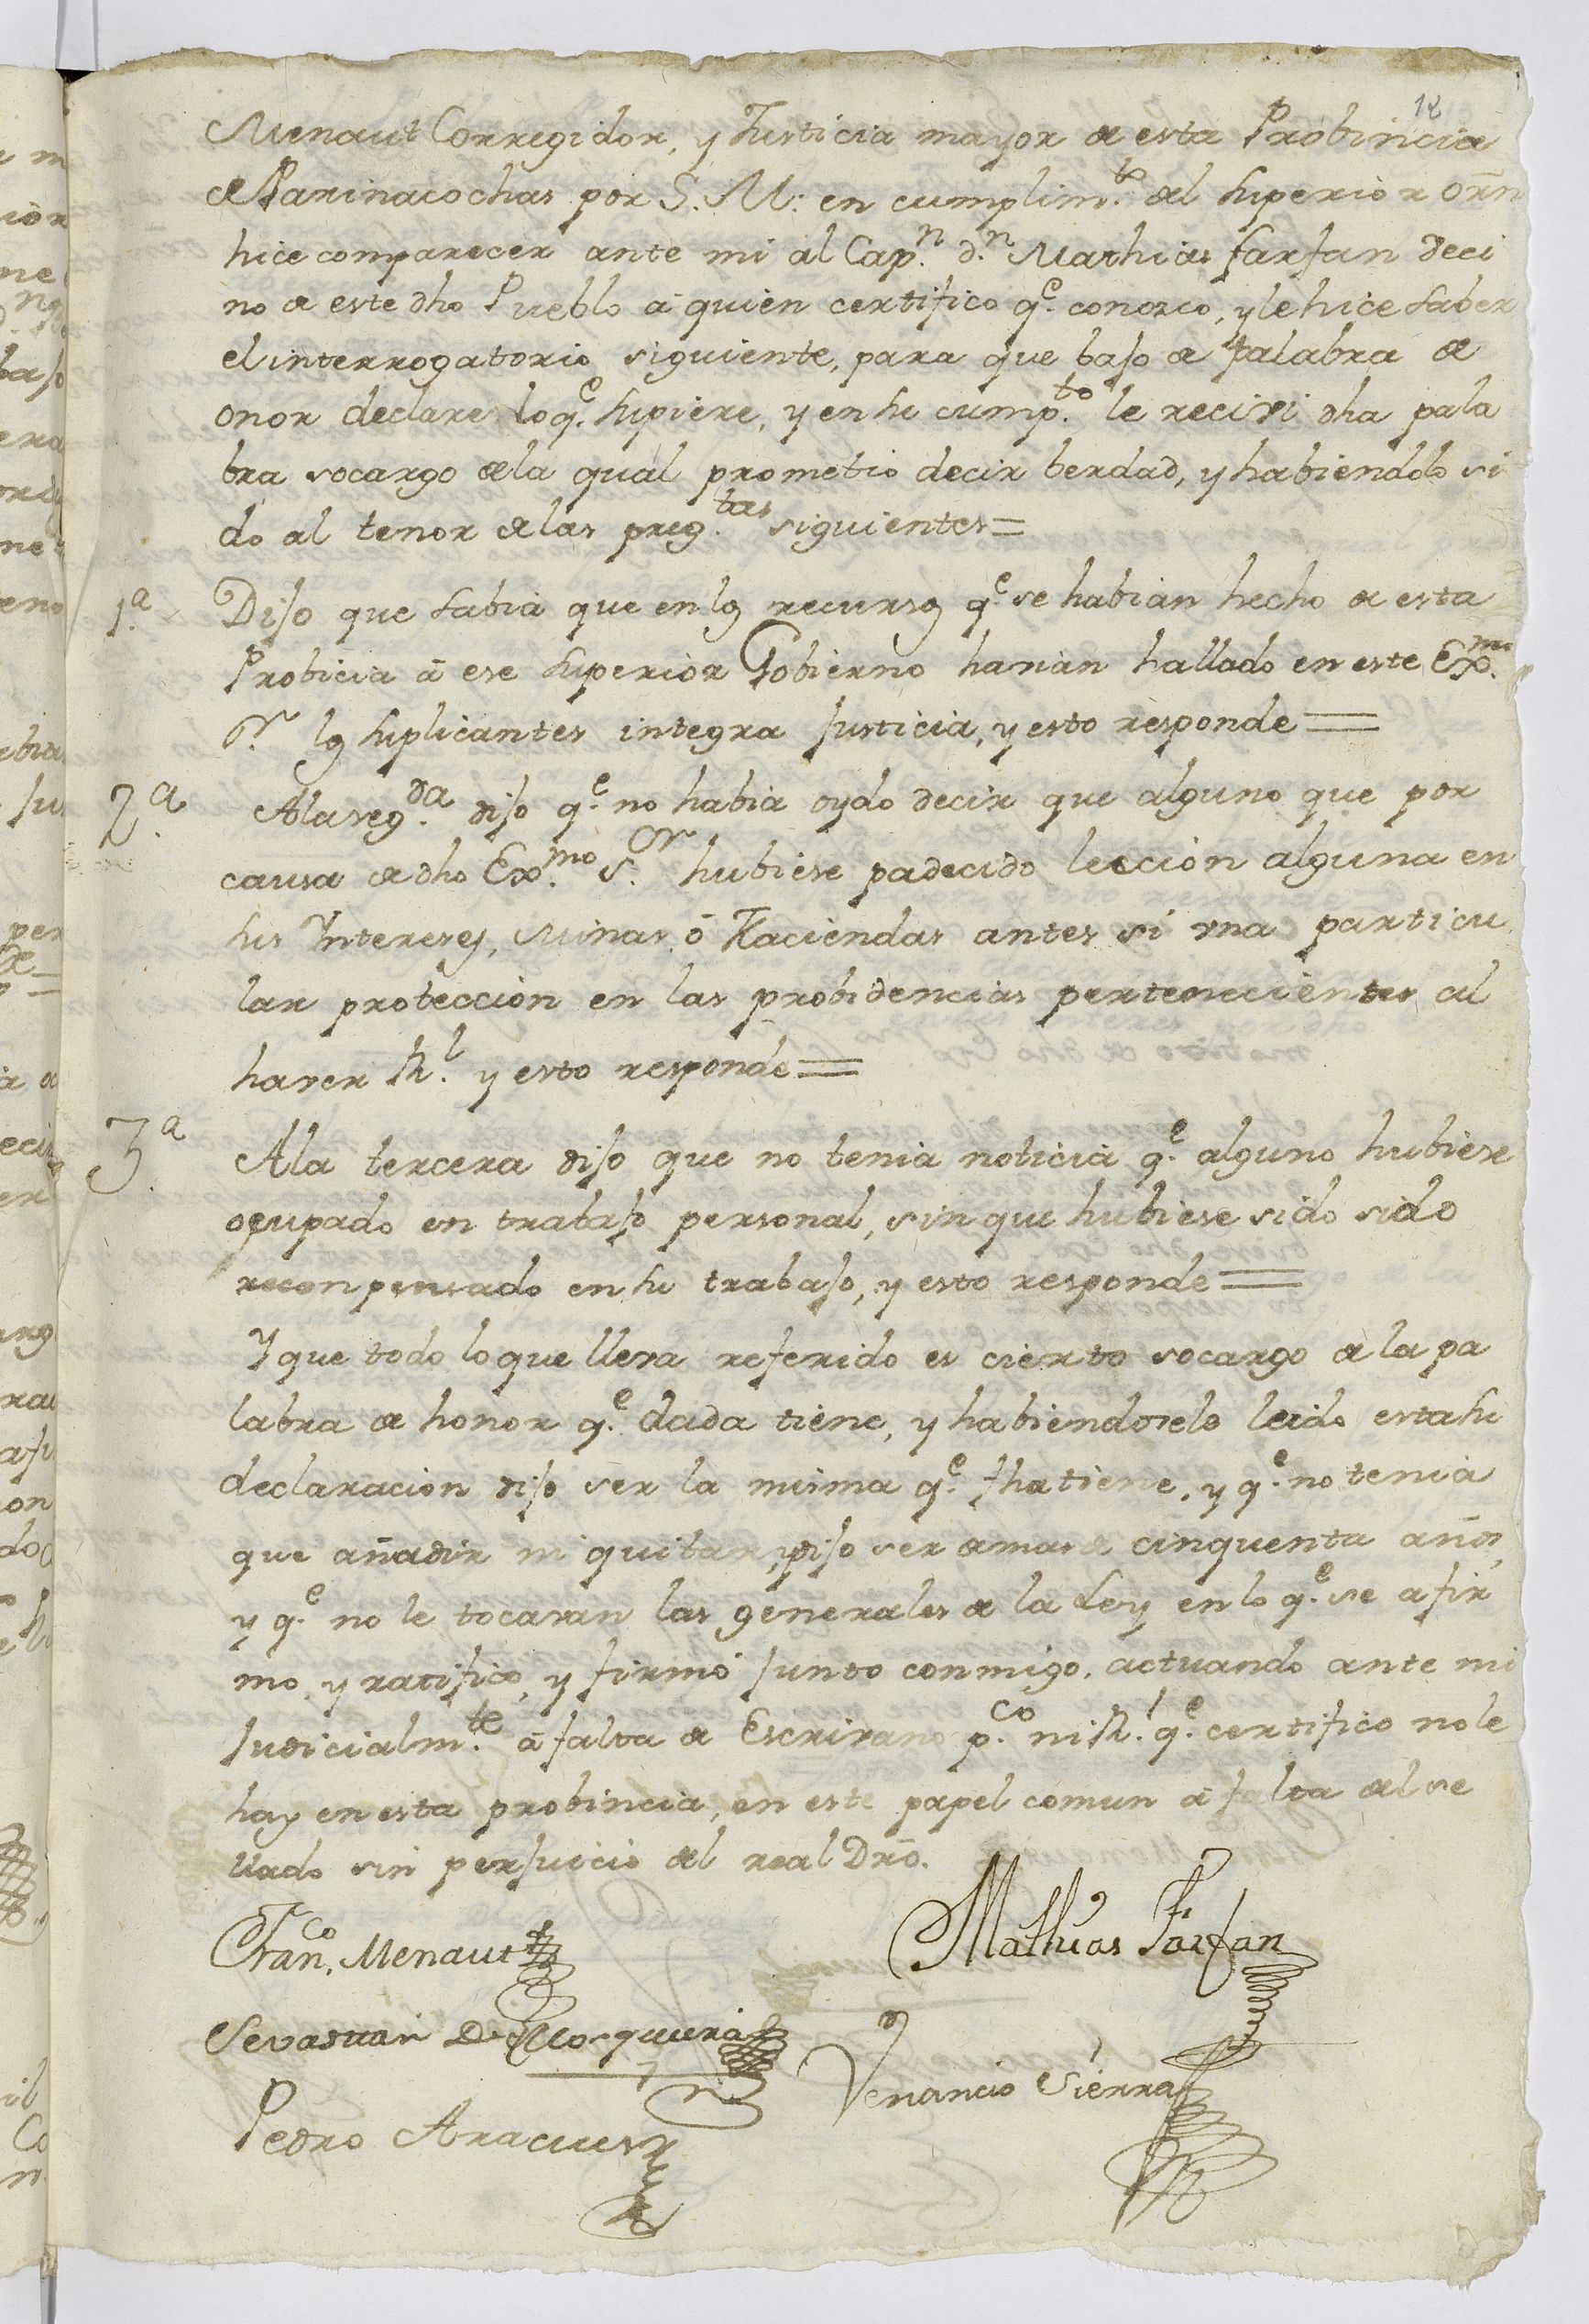 12
Menaut Corregidor, y Justicia mayor de esta Probincia
de Parinacochas por S. M: en cumplim.to del superior Orn̄
hice comparecer ante mi al Cap.n d.n Mathias farfan veci
no de este dho Pueblo â quien certifico q.e conosco, y le hice saber
el interrogatorio siguiente, para que bajo de palabra de
onor declare lo q.e supiere, y en su cump.to le recivi dha pala
bra socargo de la qual prometio decir berdad, y habiendolo si
do al tenor de las preg.tas siguientes=
1.a Dijo que sabia que en los recursos q.e se habian hecho de esta
Probicia â ese superior Gobierno havian hallado en este Ex.mo
S.r los suplicantes integra justicia, y esto responde=
2.a Ala seg.da dijo q.e no habia oydo decir que alguno que por
causa de dho Ex.mo S.or hubiese padecido leccion alguna en
sus Intereses, Minas ô Haciendas antes si vna particu
lar proteccion en las probidencias pertenecientes al
haver R.l y esto responde=
3.a Ala tercera dijo que no tenia noticia q.e alguno hubiese
ocupado en trabajo personal, sin que hubiese sido sido
reconpensado en su trabajo, y esto responde=
Y que todo lo que lleva referido es cierto socargo de la pa
labra de honor q.e dada tiene, y habiendoselo leido esta su
declaracion dijo ser la misma q.e fha tiene, y q.e no tenia
que añadir ni quitar, y dijo ser de mas de cinquenta años,
y q.e no le tocavan las generales de la Ley en lo q.e se afir
mo, y ratifico, y firmó junto conmigo, actuando ante mi
Judicialm.te â falta de Escrivano p.co ni R.l q.e certifico no le
hay en esta probincia, en este papel comun â falta del se
llado sin perjuicio del real Drō.
Fran.co Menaut
Mathias Farfan
Sevastian De Mosqueira
Venancio Sierra
Pedro Aracues